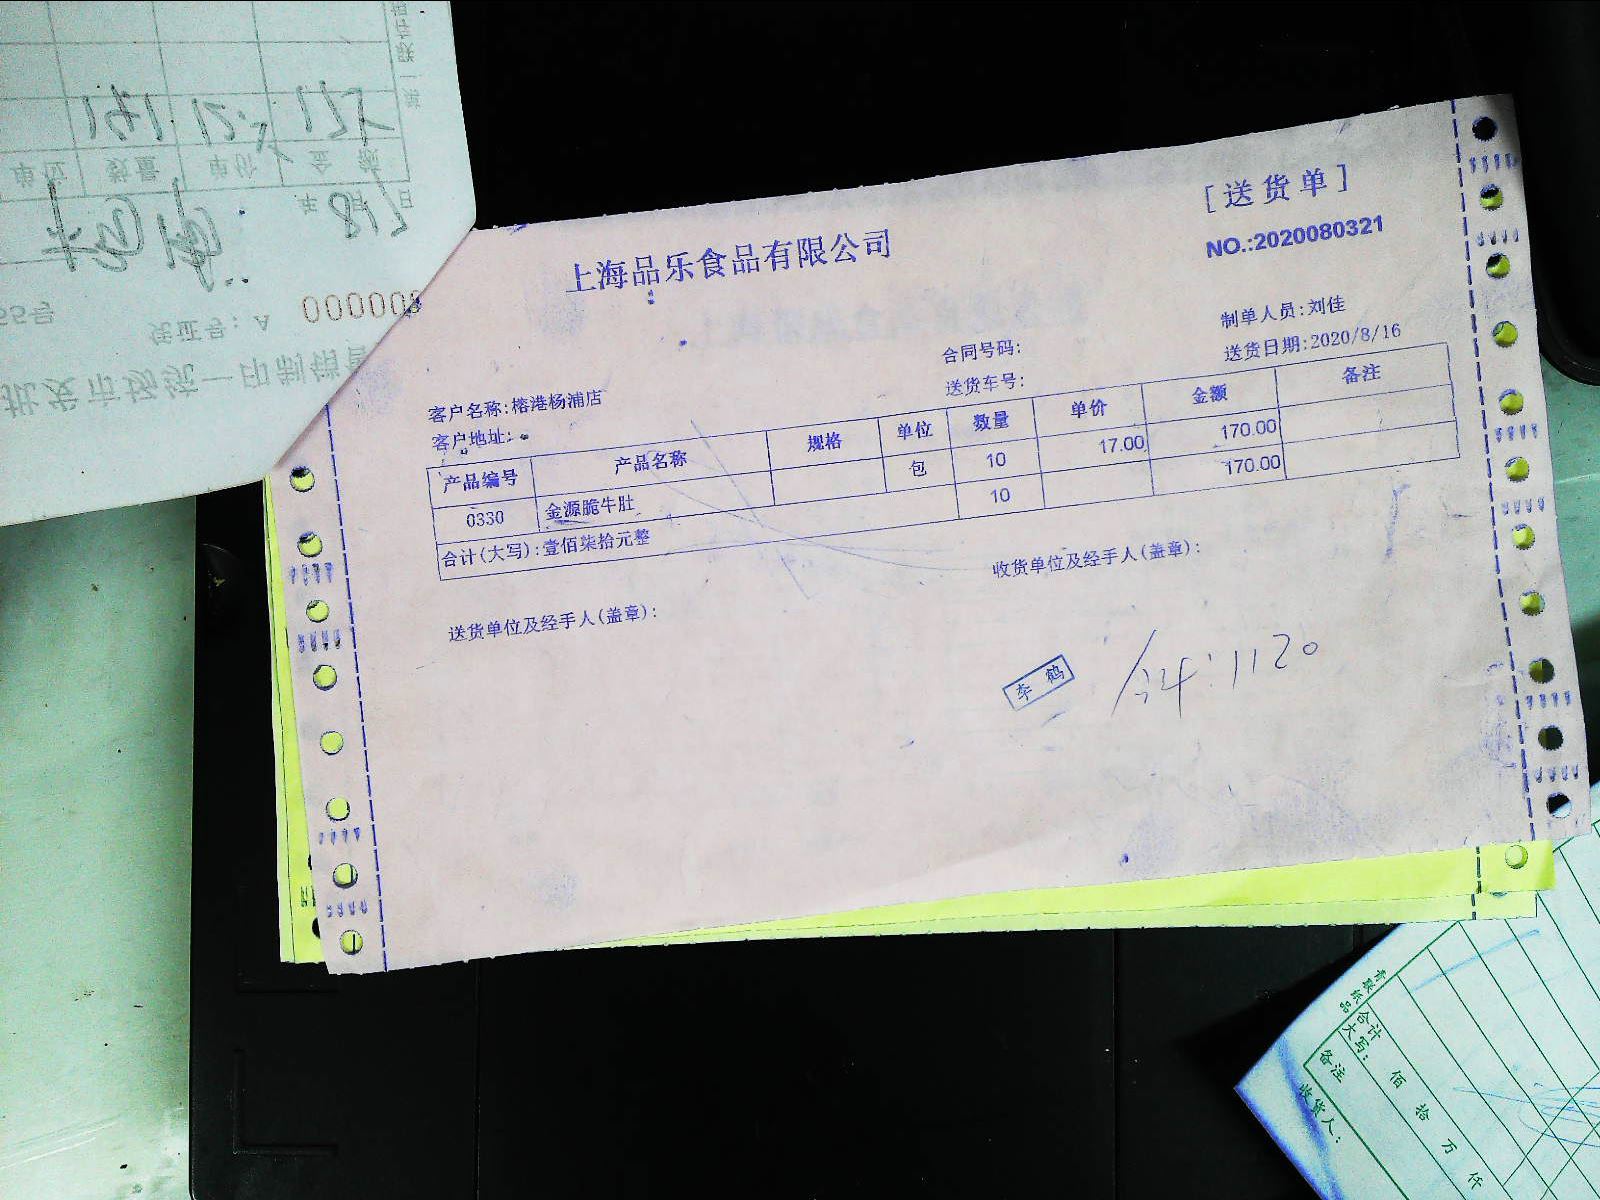 [送货单]
上海品乐食品有限公司
NO.:2020080321
制单人员:刘佳
合同号码:
送货日期:2020/8/16
客户名称:榕港杨浦店
送货车号:
客户地址:
产品编号 产品名称 规格 单位 数量 单价 金额 备注
0330 金源脆牛肚 包 10 17.00 170.00
合计(大写):壹佰柒拾元整 10 170.00
送货单位及经手人(盖章): 收货单位及经手人(盖章):
李鹤
1120
单位 数量 单价 金额
年 8 月 17 日
凭证号: A 000000
批发市场统一印制销售
合计
大写: 佰 拾 万 仟
备注
收货人: